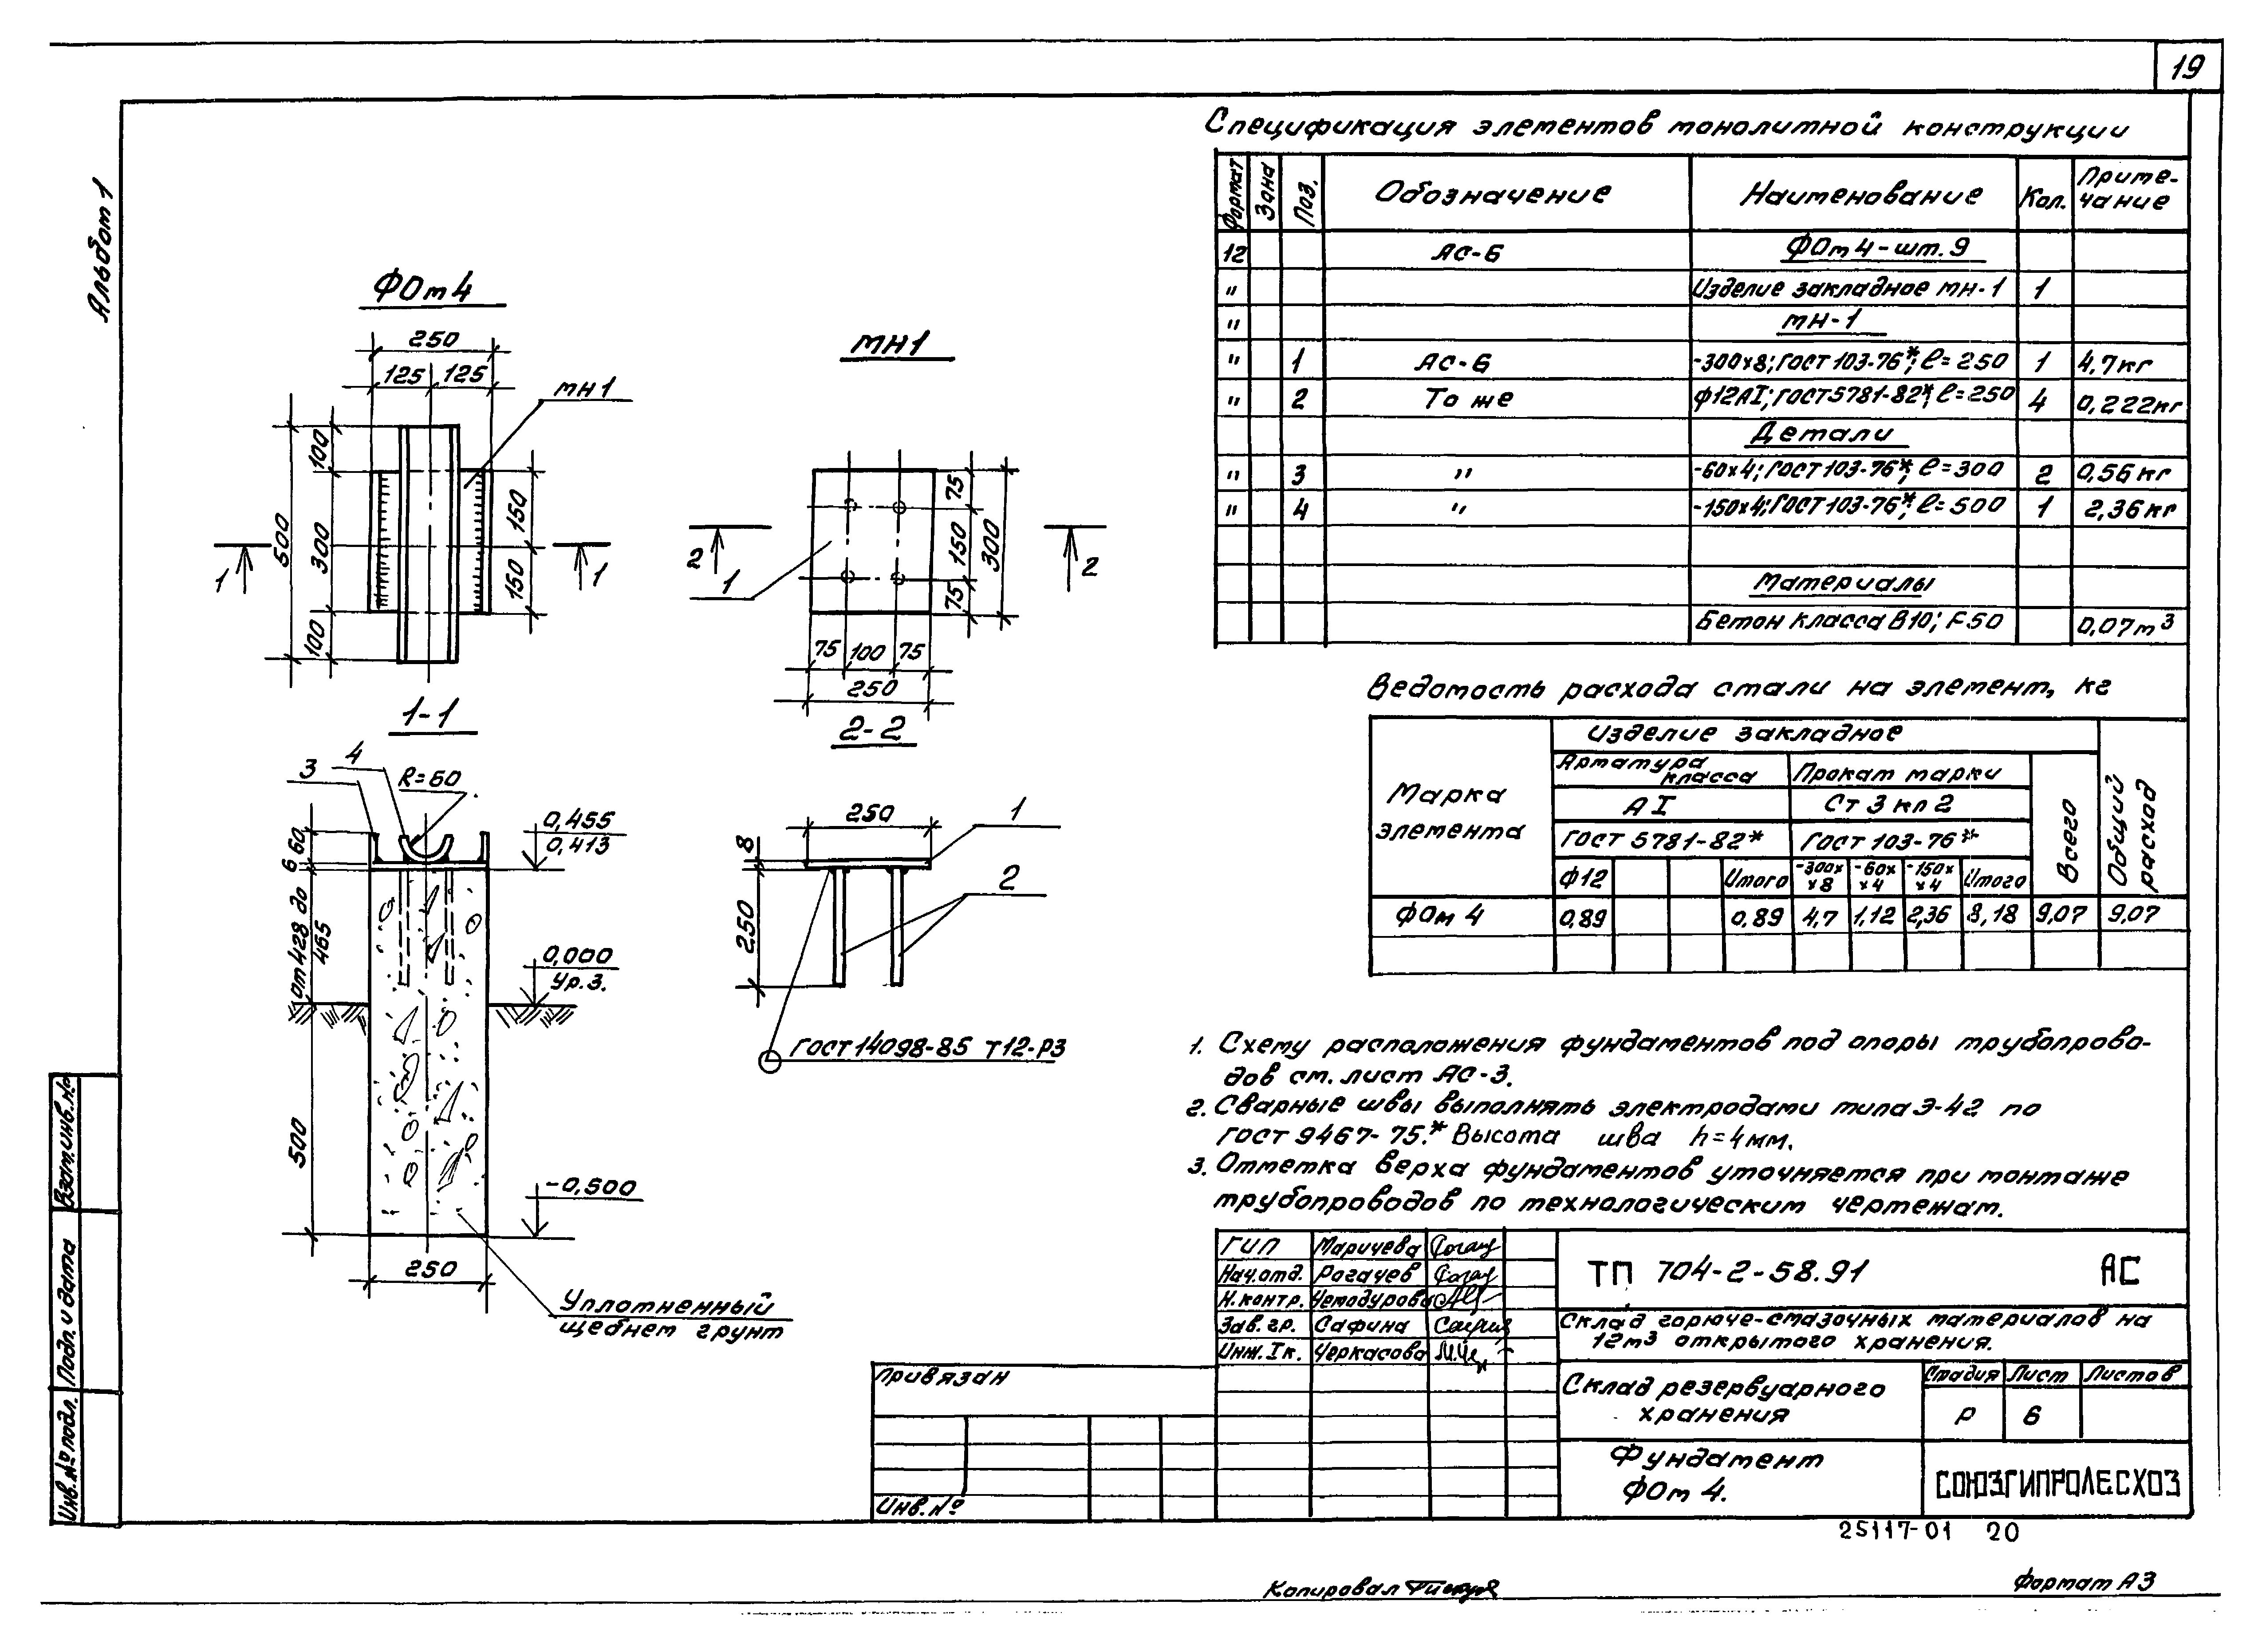 19
Альбом 1
ФОм 4
250
125 125
МН1
100
500
300
100
150
150
1 1
МН1
75
150
300
75
2 2
1
75 100 75
250
1-1
3 4 R=60
0,455
0,413
60
6
от 428 до
465
0,000
Ур.з.
500
-0,500
250
Уплотненный
щебнем грунт
2-2
250
1
8
250
2
ГОСТ 14098-85 Т12-Р3
Спецификация элементов монолитной конструкции
Формат Зона Поз. Обозначение Наименование Кол. Приме-
чание
12 АС-6 ФОм 4-шт. 9
" Изделие закладное МН-1 1
" МН-1
" 1 АС-6 -300х8; ГОСТ 103-76*; ℓ=250 1 4,7кг
" 2 То же ф12АI; ГОСТ 5781-82*; ℓ=250 4 0,222кг
Детали
" 3 " -60х4; ГОСТ 103-76*; ℓ=300 2 0,56кг
" 4 " -150х4; ГОСТ 103-76*; ℓ=500 1 2,36кг
Материалы
Бетон класса В10; F50 0,07м³
Ведомость расхода стали на элемент, кг
Марка
элемента
Изделие закладное
Арматура
класса
Прокат марки
АI Ст 3 кп 2
ГОСТ 5781-82* ГОСТ 103-76*
ф12 Итого -300х
х8 -60х
х4 -150х
х4 Итого
Всего
Общий
расход
ФОм 4 0,89 0,89 4,7 1,12 2,36 8,18 9,07 9,07
1. Схему расположения фундаментов под опоры трубопрово-
дов см. лист АС-3.
2. Сварные швы выполнять электродами типа Э-42 по
ГОСТ 9467-75.* Высота шва h=4мм.
3. Отметка верха фундаментов уточняется при монтаже
трубопроводов по технологическим чертежам.
ГИП Маричева
Нач.отд. Рогачев
Н.контр. Чемодурова
Зав.гр. Сафина
Инж.Iк. Черкасова
ТП 704-2-58.91 АС
Склад горюче-смазочных материалов на
12м³ открытого хранения.
Склад резервуарного
хранения
Стадия Лист Листов
Р 6
Фундамент
ФОм 4.
СОЮЗГИПРОЛЕСХОЗ
Привязан
Инв.№
Взам.инв.№
Подп. и дата
Инв.№ подл.
25117-01 20
Копировал
Формат А3